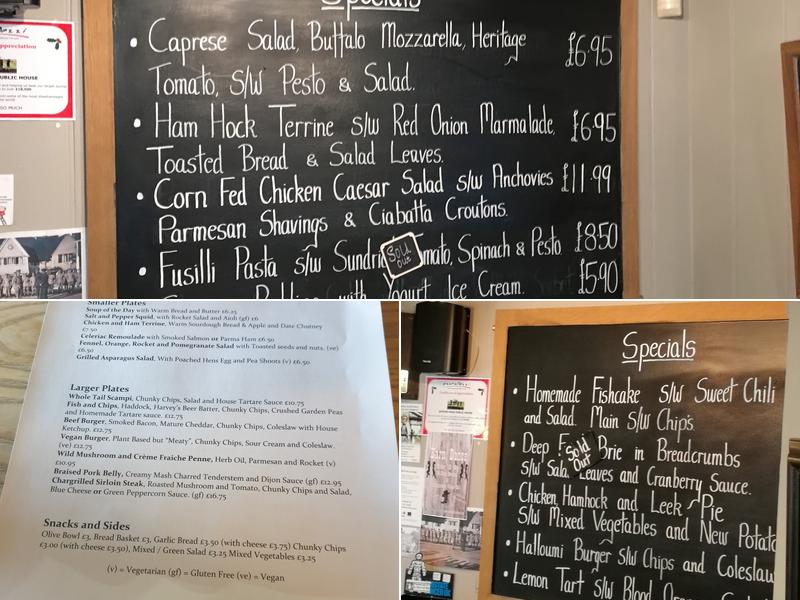 Specials
• Caprese Salad, Buffalo Mozzarella, Heritage £6.95
Tomato, s/w Pesto & Salad.
• Ham Hock Terrine s/w Red Onion Marmalade, £6.95
Toasted Bread & Salad Leaves.
• Corn Fed Chicken Caesar Salad s/w Anchovies £11.99
Parmesan Shavings & Ciabatta Croutons.
• Fusilli Pasta s/w Sundried Tomato, Spinach & Pesto £8.50
SOLD OUT
with Yogurt Ice Cream. £5.90
PUBLIC HOUSE
SO MUCH
Smaller Plates
Soup of the Day with Warm Bread and Butter £6.25
Salt and Pepper Squid, with Rocket Salad and Aioli (gf) £6
Chicken and Ham Terrine, Warm Sourdough Bread & Apple and Date Chutney
£7.50
Celeriac Remoulade with Smoked Salmon or Parma Ham £6.50
Fennel, Orange, Rocket and Pomegranate Salad with Toasted seeds and nuts. (ve)
£6.50
Grilled Asparagus Salad, With Poached Hens Egg and Pea Shoots (v) £6.50
Larger Plates
Whole Tail Scampi, Chunky Chips, Salad and House Tartare Sauce £10.75
Fish and Chips, Haddock, Harvey's Beer Batter, Chunky Chips, Crushed Garden Peas
and Homemade Tartare sauce. £12.75
Beef Burger, Smoked Bacon, Mature Cheddar, Chunky Chips, Coleslaw with House
Ketchup. £12.75
Vegan Burger, Plant Based but "Meaty", Chunky Chips, Sour Cream and Coleslaw.
(ve) £12.75
Wild Mushroom and Crème Fraiche Penne, Herb Oil, Parmesan and Rocket (v)
£10.95
Braised Pork Belly, Creamy Mash Charred Tenderstem and Dijon Sauce (gf) £12.95
Chargrilled Sirloin Steak, Roasted Mushroom and Tomato, Chunky Chips and Salad,
Blue Cheese or Green Peppercorn Sauce. (gf) £16.75
Snacks and Sides
Olive Bowl £3, Bread Basket £3, Garlic Bread £3.50 (with cheese £3.75) Chunky Chips
£3.00 (with cheese £3.50), Mixed / Green Salad £3.25 Mixed Vegetables £3.25
(v) = Vegetarian (gf) = Gluten Free (ve) = Vegan
Specials
• Homemade Fishcake s/w Sweet Chili
and Salad. Main s/w Chips.
• Deep Brie in Breadcrumbs
Sold Out
s/w Salad Leaves and Cranberry Sauce.
• Chicken, Hamhock and Leek Pie
s/w Mixed Vegetables and New Potato
• Halloumi Burger s/w Chips and Coleslaw
• Lemon Tart s/w Blood